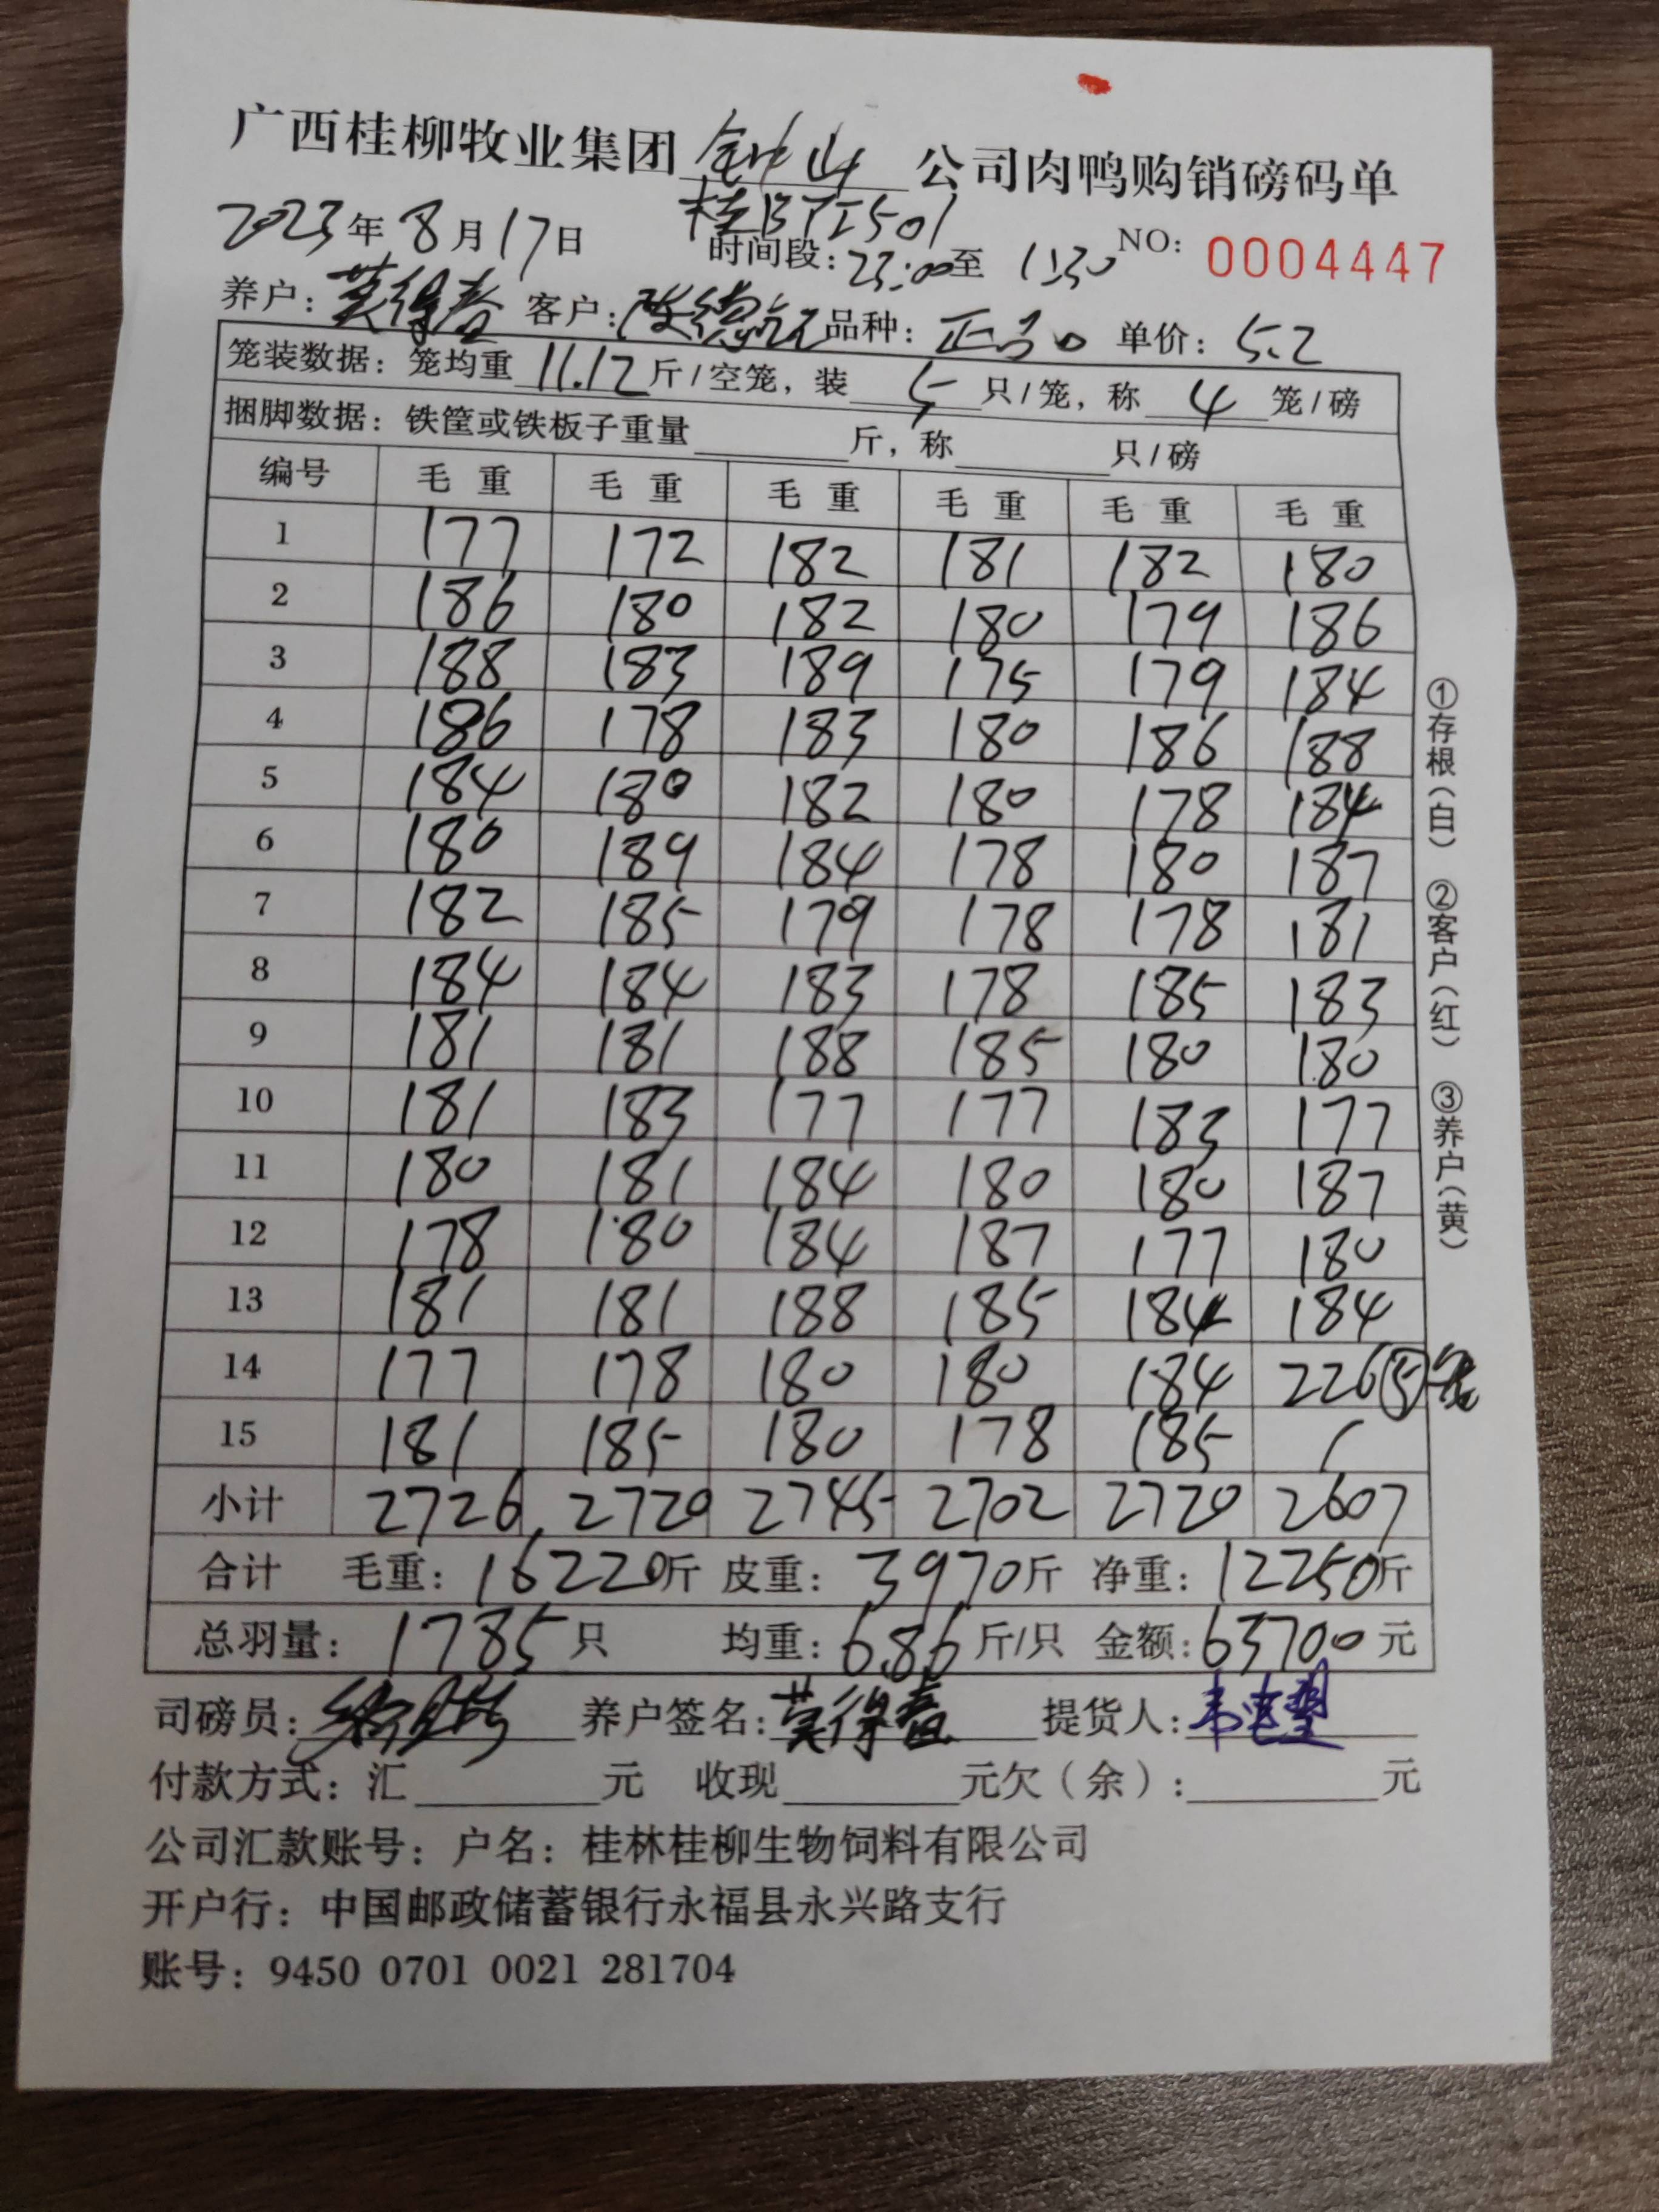 广西桂柳牧业集团 钟山 公司肉鸭购销磅码单
2023年8月17日 时间段：23:00至1:30 NO：0004447
养户：莫得春 客户： 品种： 单价：5.2
笼装数据：笼均重 11.12 斤/空笼，装 5 只/笼，称 4 笼/磅
捆脚数据：铁筐或铁板子重量 斤，称 只/磅
编号 毛重 毛重 毛重 毛重 毛重 毛重
1 177 172 182 181 182 180
2 186 180 182 180 179 186
3 188 183 189 175 179 184
4 186 178 183 180 186 188
5 184 180 182 180 178 184
6 180 189 184 178 180 187
7 182 185 179 178 178 181
8 184 184 183 178 185 183
9 181 181 188 185 180 180
10 181 183 177 177 183 177
11 180 181 184 180 180 187
12 178 180 184 187 177 180
13 181 181 188 185 184 184
14 177 178 180 180 184 226⑤笼
15 181 185 180 178 185 /
小计 2726 2720 2745 2702 2720 2607
合计 毛重：16220斤 皮重：3970斤 净重：12250斤
总羽量：1785只 均重：6.86斤/只 金额：63700元
司磅员： 养户签名：莫得春 提货人：
付款方式：汇 元 收现 元欠（余）： 元
公司汇款账号：户名：桂林桂柳生物饲料有限公司
开户行：中国邮政储蓄银行永福县永兴路支行
账号：9450 0701 0021 281704
①存根（白） ②客户（红） ③养户（黄）